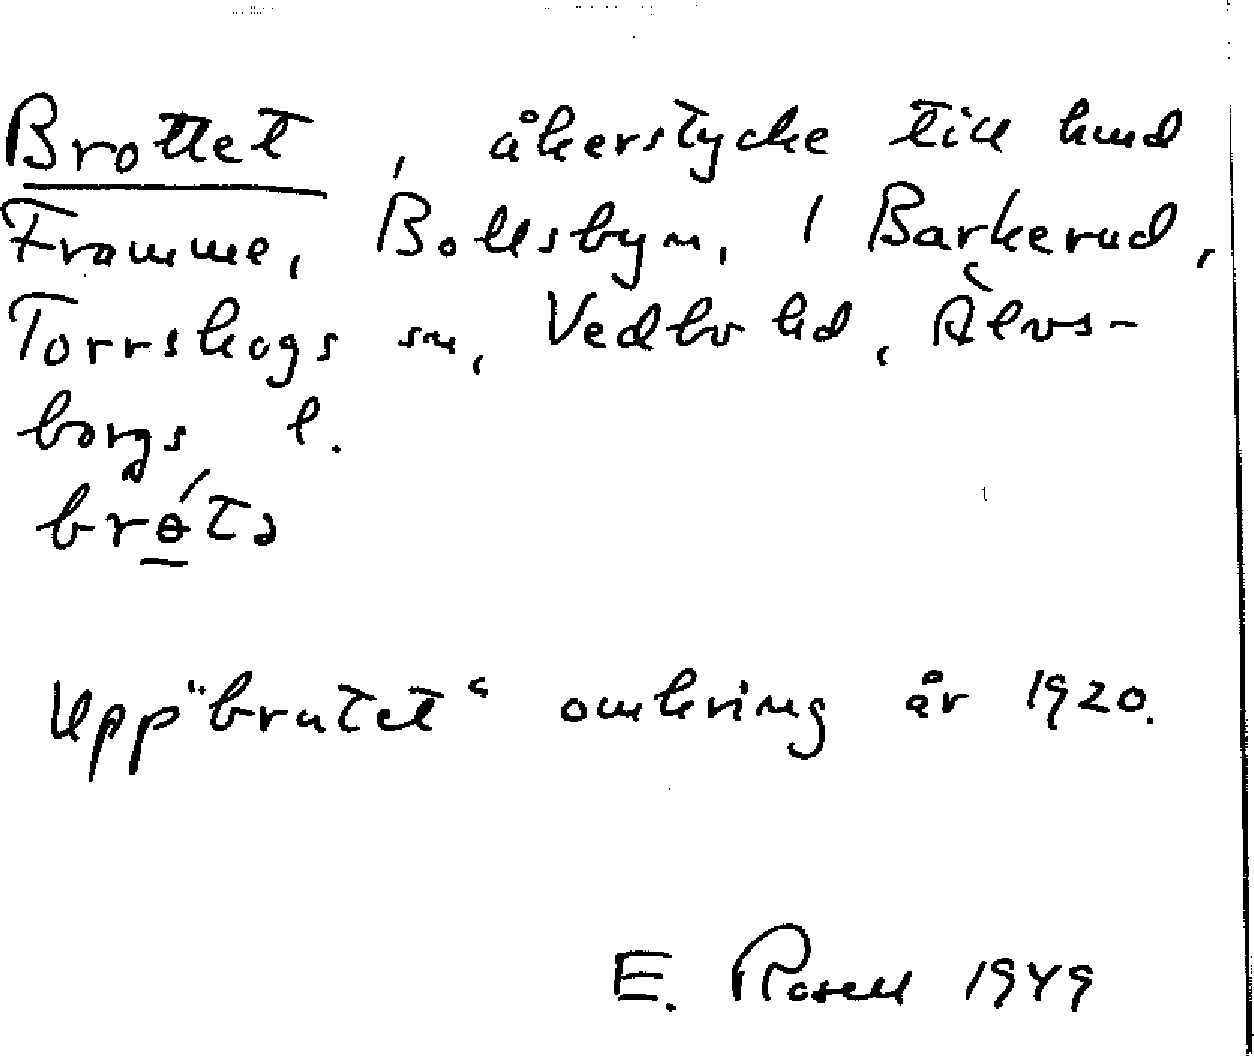 Brottet, åkerstycke till hmd
Framme, Bollsbyn, 1 Barkerud,
Torrskogs sn, Vedbo hd, Älvs-
borgs l.
brɵ́tə
Upp"brutet" omkring år 1920.
E. Rosell 1949